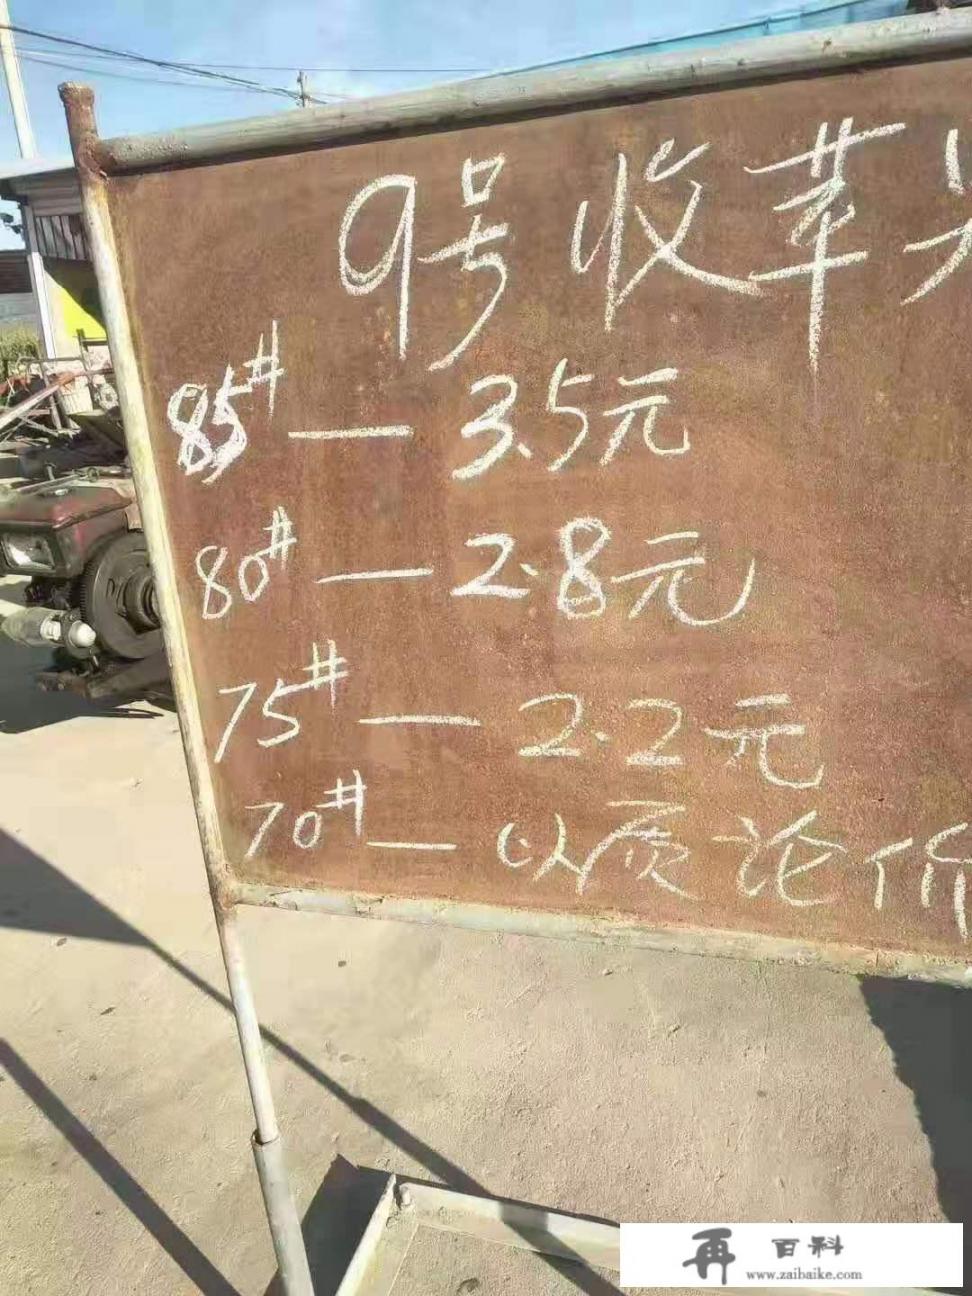 9号收苹
85# — 3.5元
80# — 2.8元
75# — 2.2元
70# — 以质论价
再 百科
www.zaibaike.com